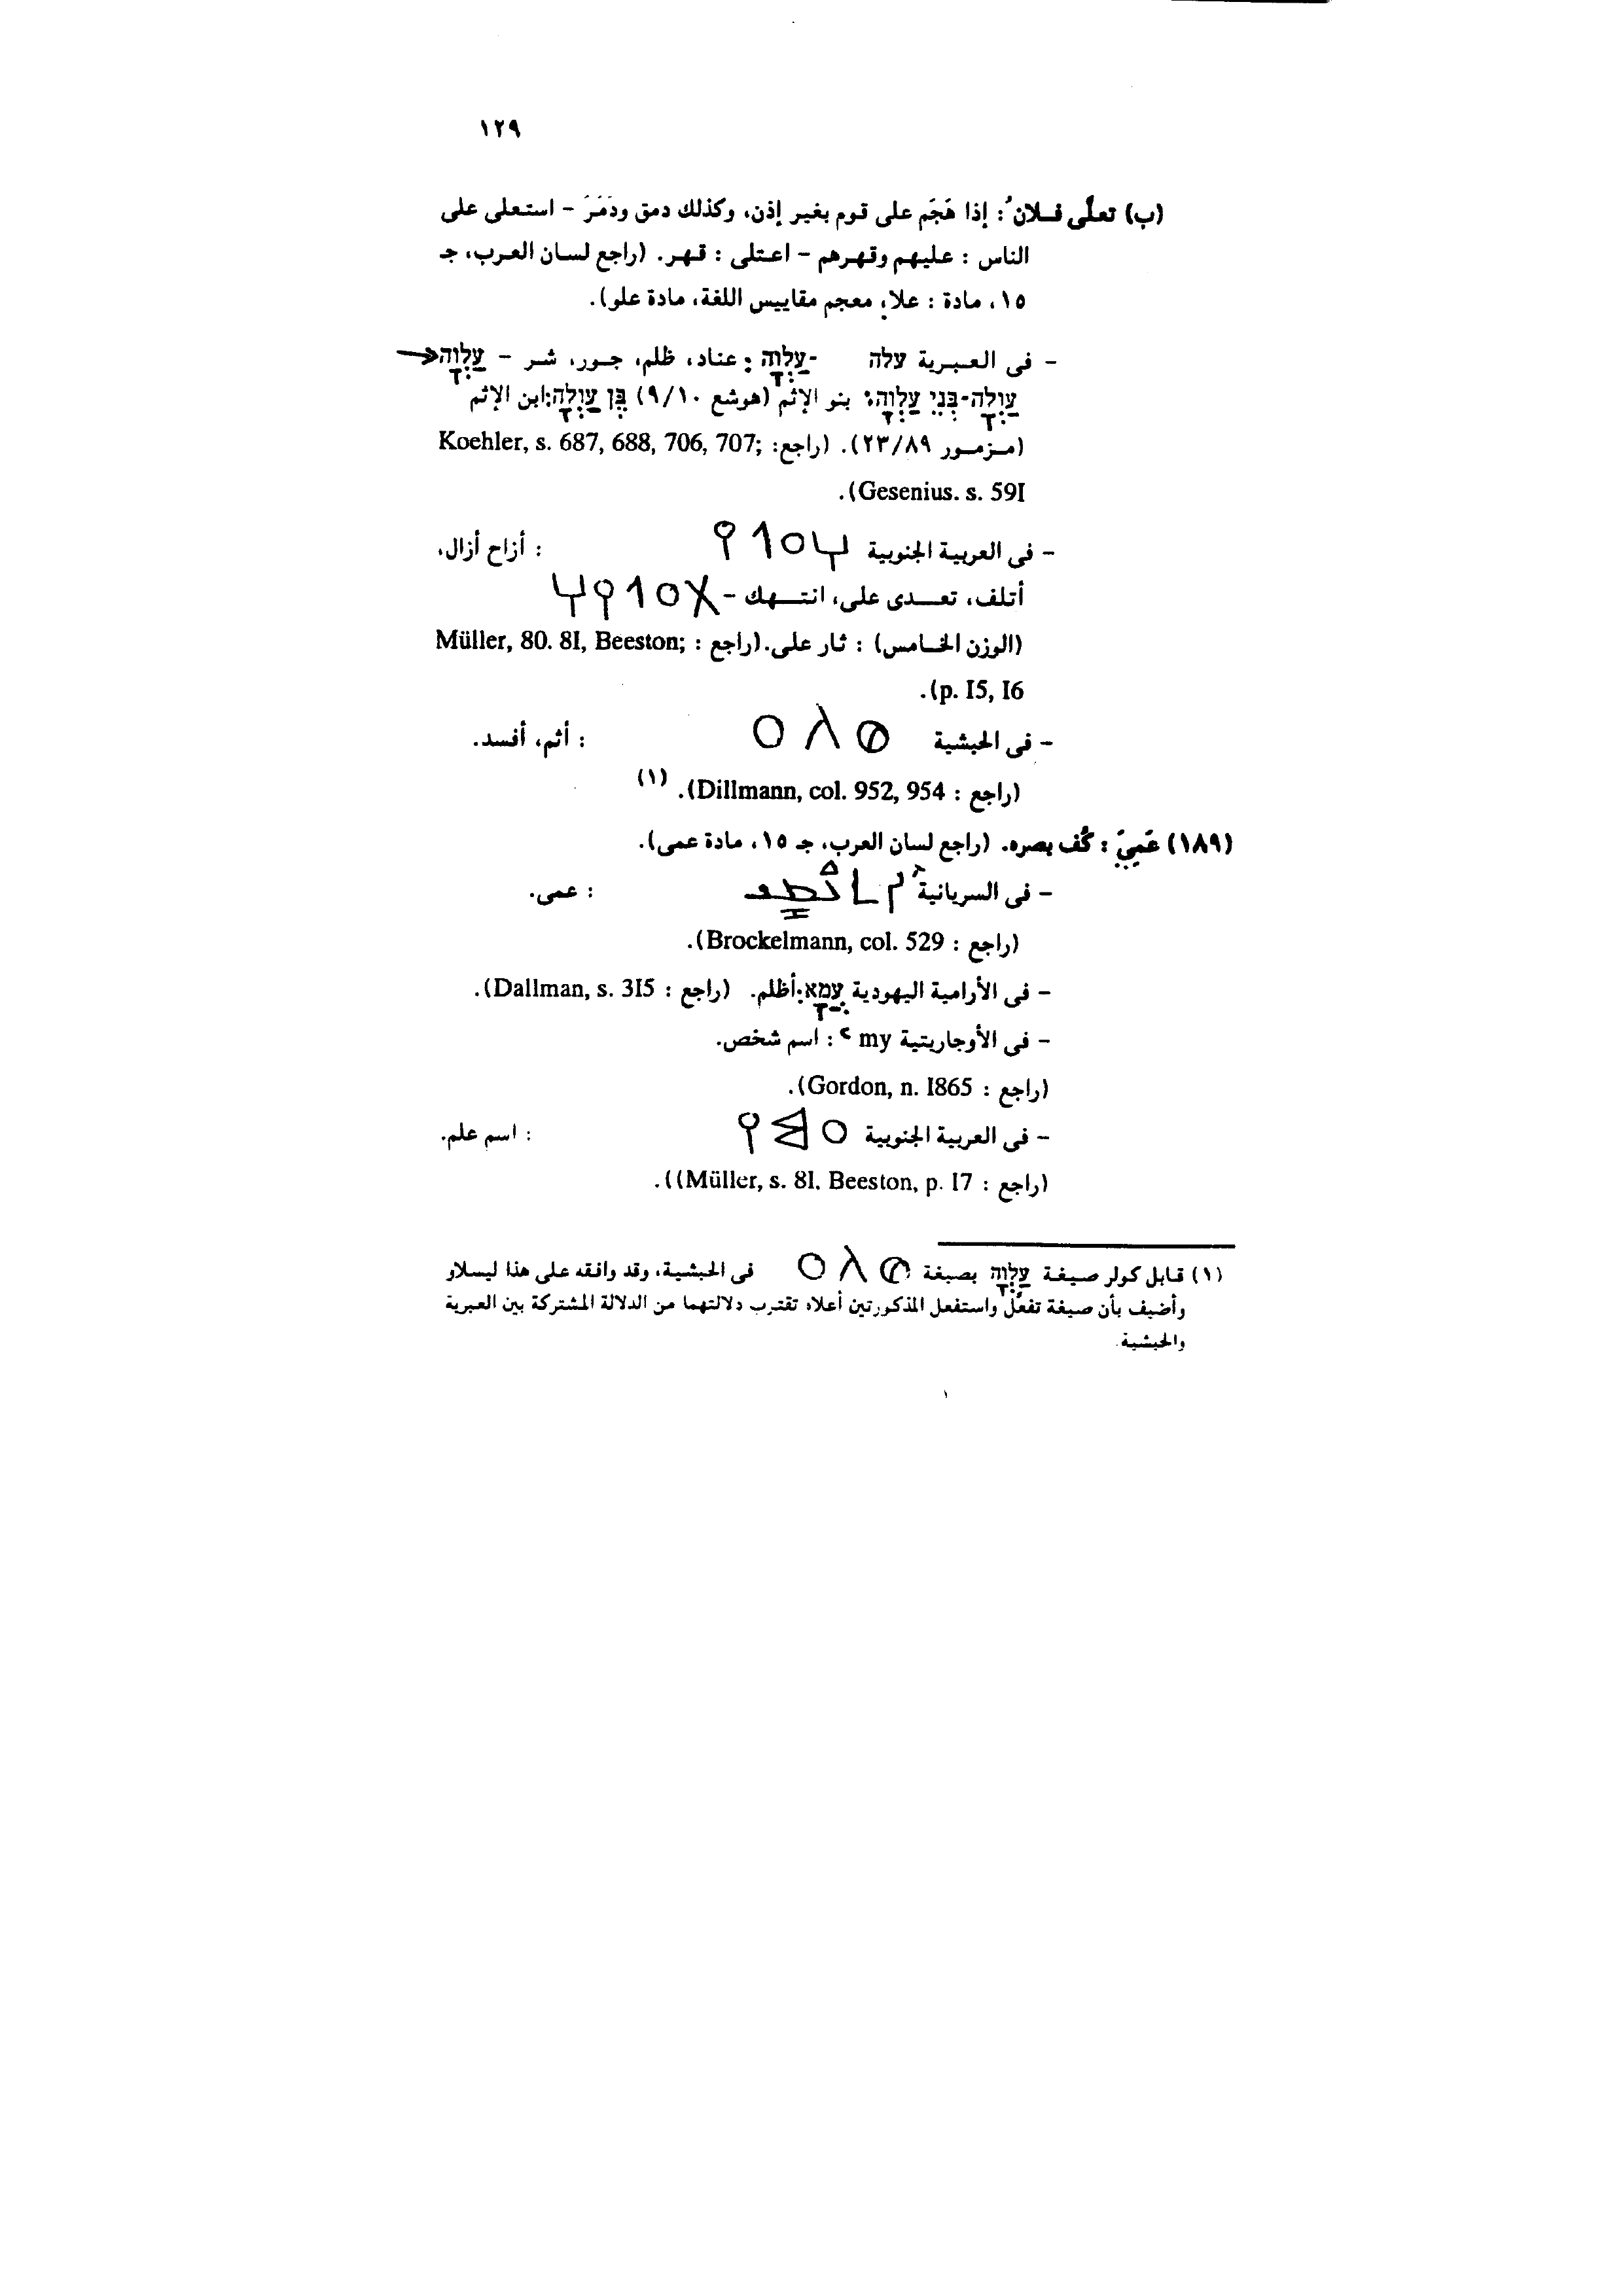 ١٢٩
(ب) تعلَّى فلانُ: إذا هَجَم على قوم بغير إذن، وكذلك دمق ودَمَرَ - استعلى على
الناس : عليهم وقهرهم - اعتلى : قهر. (راجع لسان العرب، جـ
١٥، مادة : علا، معجم مقاييس اللغة، مادة علو).
- فى العبرية עלה -עַלְוָה: عناد، ظلم، جور، شر - עַלְוָה→
עַוְלָה-בְּנֵי עַלְוָה: بنو الإثم (هوشع ٩/١٠) בֶּן עַוְלָה:ابن الإثم
(مزمور ٢٣/٨٩). (راجع: Koehler, s. 687, 688, 706, 707;
Gesenius. s. 59I).
- فى العربية الجنوبية : أزاح أزال،
أتلف، تعدى على، انتهك -
(الوزن الخامس) : ثار على. (راجع : Müller, 80. 8I, Beeston;
p. I5, I6).
- فى الحبشية : أثم، أفسد.
(راجع : Dillmann, col. 952, 954). (١)
(١٨٩) عَمِيَ : كُف بصره. (راجع لسان العرب، جـ ١٥، مادة عمى).
- فى السريانية : عمى.
(راجع : Brockelmann, col. 529).
- فى الأرامية اليهودية עֲמָא:أظلم. (راجع : Dallman, s. 3I5).
- فى الأوجاريتية my ʿ : اسم شخص.
(راجع : Gordon, n. I865).
- فى العربية الجنوبية : اسم علم.
(راجع : Müller, s. 8I. Beeston, p. I7)).
(١) قابل كولر صيغة עַלְוָה بصيغة فى الحبشية، وقد وافقه على هذا ليسلاو
وأضيف بأن صيغة تفعَّل واستفعل المذكورتين أعلاه تقترب دلالتهما من الدلالة المشتركة بين العبرية
والحبشية.